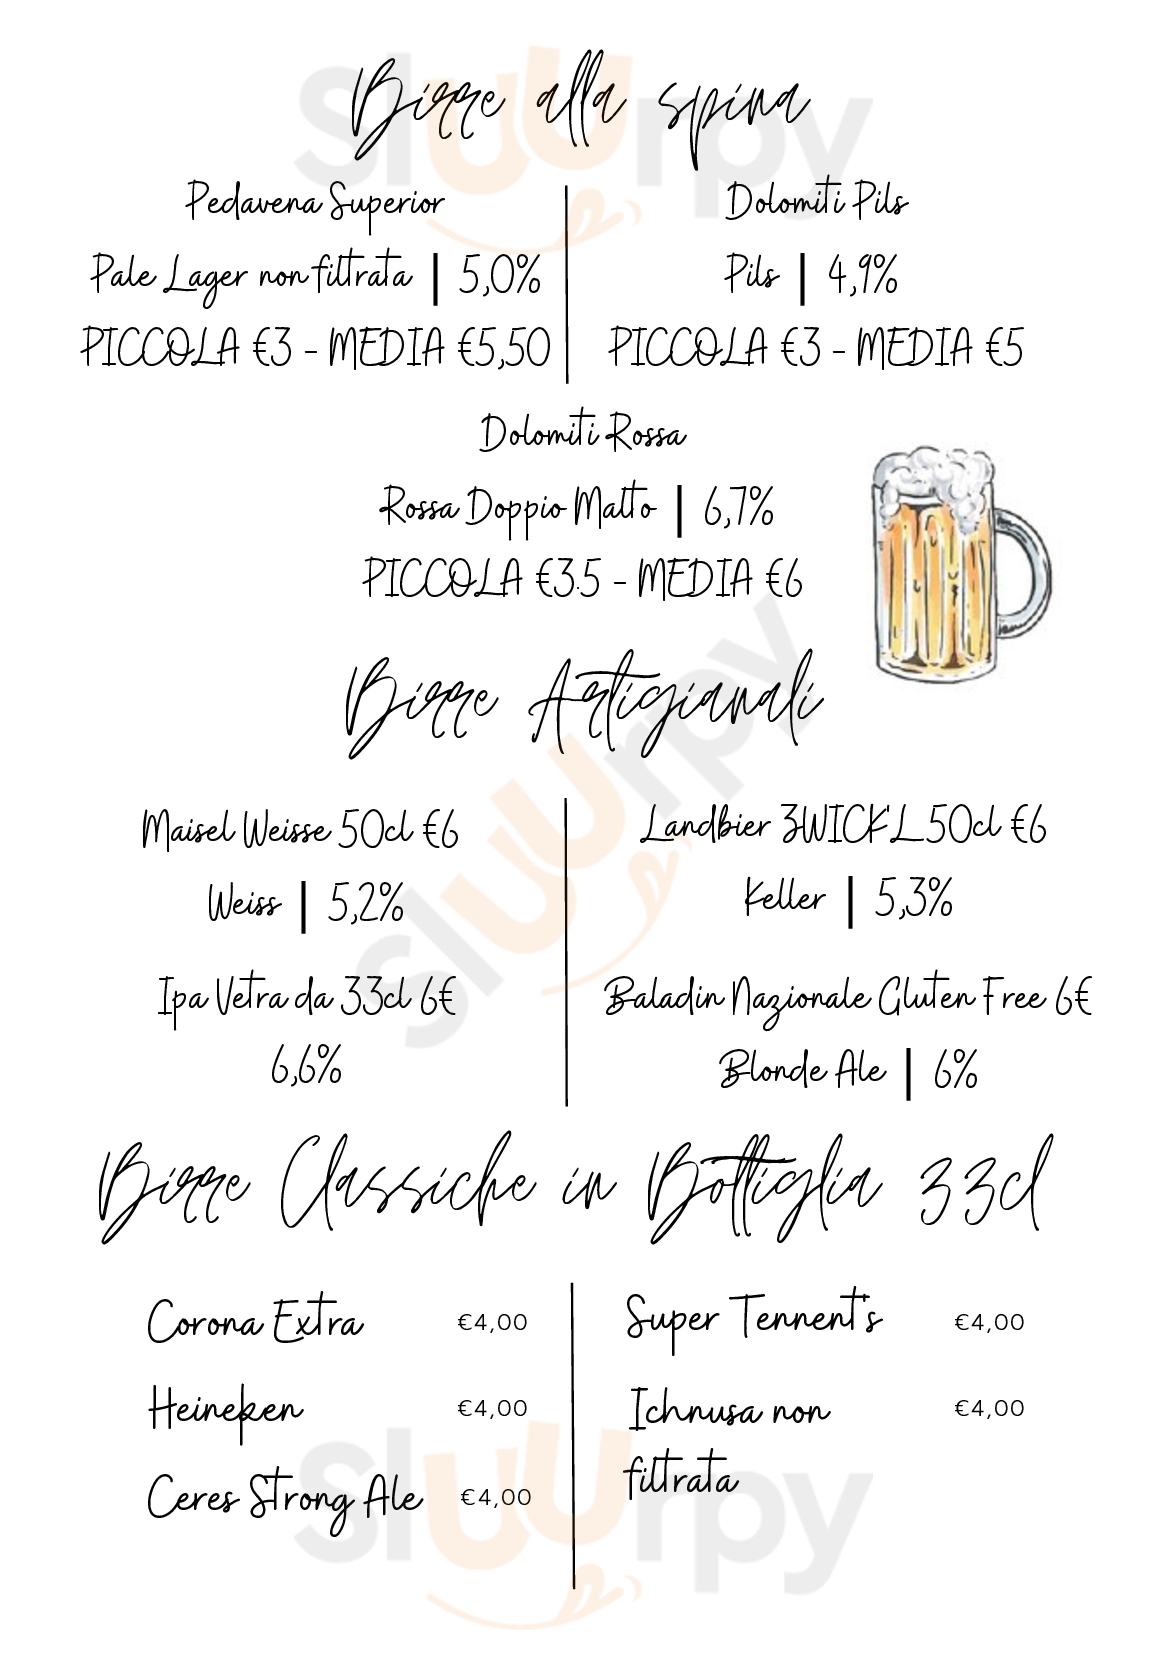 Birre alla spina
Pedavena Superior
Pale Lager non filtrata | 5,0%
PICCOLA €3 - MEDIA €5,50
Dolomiti Pils
Pils | 4,9%
PICCOLA €3 - MEDIA €5
Dolomiti Rossa
Rossa Doppio Malto | 6,7%
PICCOLA €3.5 - MEDIA €6
Birre Artigianali
Maisel Weisse 50cl €6
Weiss | 5,2%
Ipa Vetra da 33cl 6€
6,6%
Landbier ZWICK'L 50cl €6
Keller | 5,3%
Baladin Nazionale Gluten Free 6€
Blonde Ale | 6%
Birre Classiche in Bottiglia 33cl
Corona Extra €4,00
Heineken €4,00
Ceres Strong Ale €4,00
Super Tennent's €4,00
Ichnusa non €4,00
filtrata
Sluurpy
Sluurpy
Sluurpy